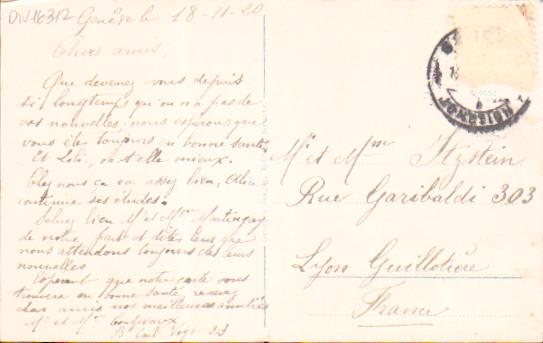 DIV16312
Genève le 18-11-20
Chers amis,
Que devenez vous depuis
si longtemps qu'on n'a pas de
vos nouvelles, nous esperons que
vous êtes toujours en bonne santé
Et Lili, va-t-elle mieux.
Chez nous ça va assez bien,
continue ses études.
Saluez bien Mr et Mme Martingay
de notre part et dites leur que
nous attendons toujours de leurs
nouvelles
Esperant que notre carte vous
trouvera en bonne santé recevez
chers amis nos meilleures amitiés
Mr et Mme
B Carl Vogt 23
Mr et Mme Itzstein
Rue Garibaldi 303
Lyon Guillotière
France